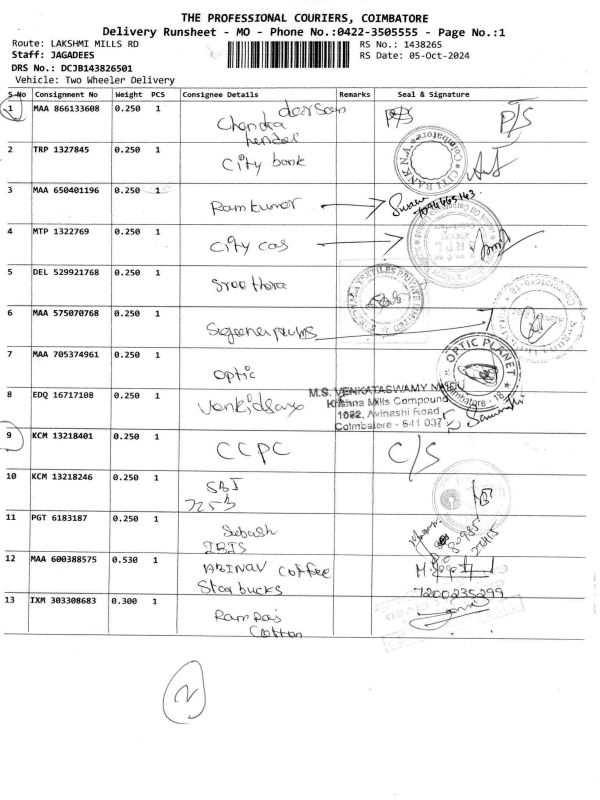 THE PROFESSIONAL COURIERS, COIMBATORE
Delivery Runsheet - MO - Phone No.:0422-3505555 - Page No.:1
Route: LAKSHMI MILLS RD
RS No.: 1438265
Staff: JAGADEES
RS Date: 05-Oct-2024
DRS No.: DCJB143826501
Vehicle: Two Wheeler Delivery
S No Consignment No Weight PCS Consignee Details Remarks Seal & Signature
1 MAA 866133608 0.250 1
Chandra
P/S
2 TRP 1327845 0.250 1
City bank
CITI BANK N.A. Coimbatore
3 MAA 650401196 0.250 1
Ramkumar
4 MTP 1322769 0.250 1
City cas
5 DEL 529921768 0.250 1
Sree Hara
6 MAA 575070768 0.250 1
7 MAA 705374961 0.250 1
optic
OPTIC PLANET
Coimbatore - 18
8 EDQ 16717108 0.250 1
M.S. VENKATASWAMY NAIDU
Krishna Mills Compound
1082, Avinashi Road
Coimbatore - 641 037
9 KCM 13218401 0.250 1
CCPC
C/S
10 KCM 13218246 0.250 1
SBI
7253
11 PGT 6183187 0.250 1
Subash
IBIS
12 MAA 600388575 0.530 1
ABINAV coffee
Starbucks
7200235299
13 IXM 303308683 0.300 1
Ramraj
Cotton
2